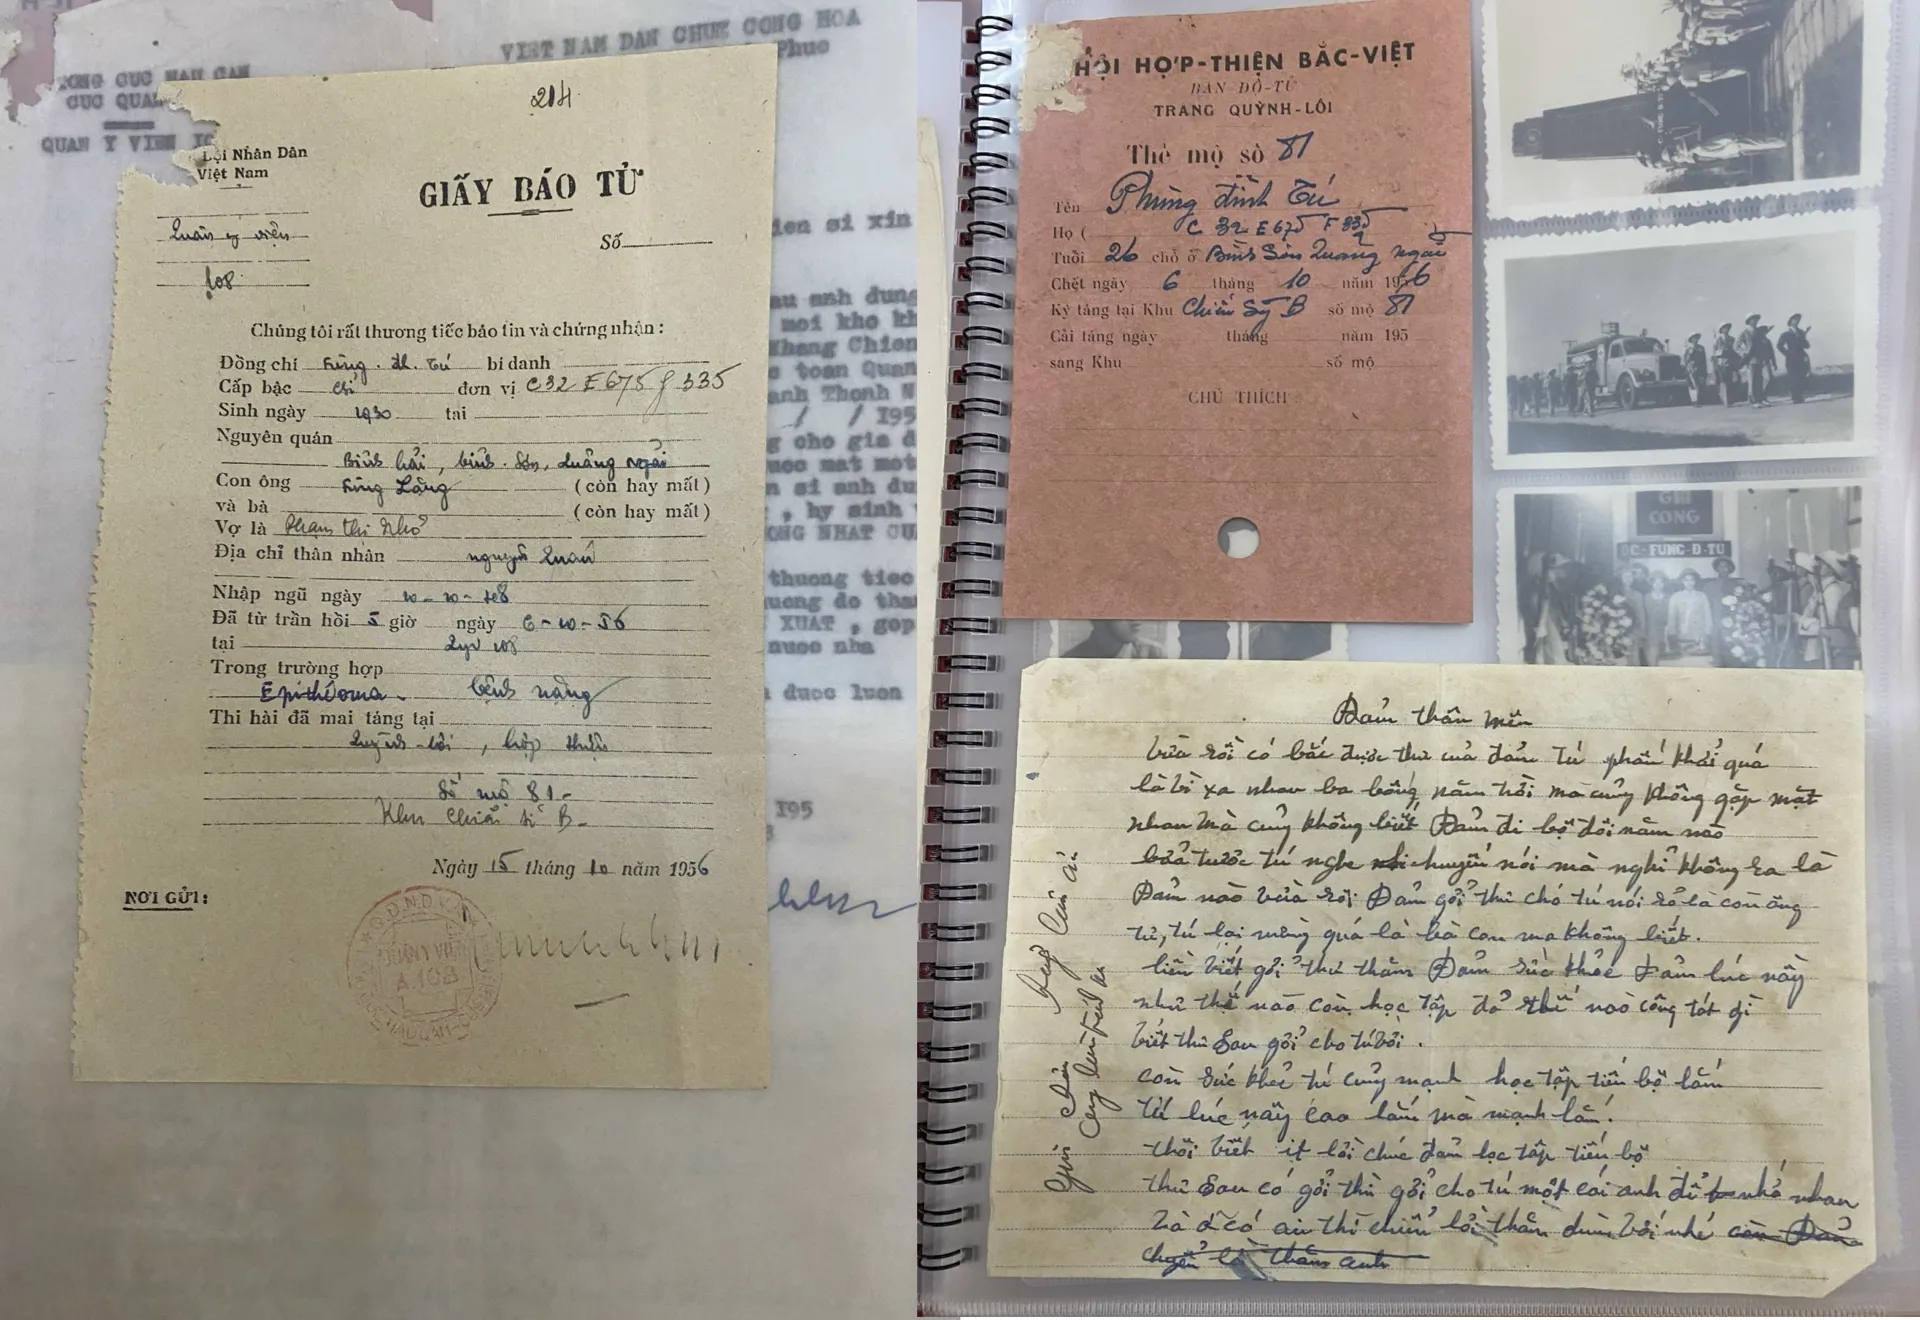 VIET NAM DAN CHUK CONG HOA
Phuc
TONG CUC HAU CAN
CUC QUAN
QUAN Y VIEN
214
Đội Nhân Dân
Việt Nam
Quân y viện
108
GIẤY BÁO TỬ
Số
Chúng tôi rất thương tiếc báo tin và chứng nhận :
Đồng chí Fùng . đ. Tú bí danh
Cấp bậc đơn vị C32 E675 F 335
Sinh ngày 1930 tai
Nguyên quán
Bình hải, bình . Sơn, Quảng Ngãi
Con ông Fùng Lằng (còn hay mất)
và bà (còn hay mất)
Vợ là Phạm thị Nhỏ
Địa chỉ thân nhân nguyên quán
Nhập ngũ ngày 10-10-
Đã từ trần hồi 5 giờ ngày 6-10-56
tại Qyv 108
Trong trường hợp
Epithéoma - bệnh nặng
Thi hài đã mai táng tại
Quỳnh-lôi, hợp thiện
Số mộ 81-
Khu Chiến sĩ B-
Ngày 15 tháng 10 năm 1956
NƠI GỬI :
Q.Đ.N.D.V.N
QUÂN Y VIỆN
A.108
ien si xin
au anh dung
moi kho kh
Khang Chien
c toan Quan
anh Thonh N
/ / I95
g cho gia d
uoc mat mot
n si anh du
, hy sinh
ONG NHAT CU
thuong tiec
uong do tha
XUAT , gop
nuoc nha
duoc luon
I95
HỘI HỢP-THIỆN BẮC-VIỆT
BAN ĐÔ-TÙ
TRANG QUỲNH-LÔI
Thẻ mộ số 81
Tên Phùng đình Tú
Họ ( C 32 E675 F 335
Tuổi 26 chỗ ở Bình Sơn Quảng ngãi
Chết ngày 6 tháng 10 năm 1956
Ký táng tại Khu Chiến Sỹ B số mộ 81
Cải táng ngày tháng năm 195
sang Khu số mộ
CHÚ THÍCH
GHI
CÔNG
ĐC-FUNG-Đ-TU
Đảm thân mến
vừa rồi có bắc được thư của đảm tú phấn khải quá
là vì xa nhau ba bống năm trời mà củng không gặp mặt
nhau mà củng không biết Đảm đi bộ đôi năm nào
bửa trước tú nghe chuyến nói mà nghỉ không ra là
Đảm nào vừa rồi Đảm gởi thư cho tú nói rỏ là con ông
tư, tú lại mừng quá là bà con mà không biết.
liền viết gởi thư thăm Đảm sức khỏe Đảm lúc nầy
như thế nào còn học tập đả thế nào công tát gì
viết thư sau gởi cho tú với .
còn sức khỏe tú củng mạnh học tập tiến bộ lắm
tú lúc nầy cao lắm mà mạnh lắm.
thôi viết ít lời chúc đảm học tập tiến bộ
thư sau có gởi thì gởi cho tú một cái anh để nhớ nhau
và ở có ai thì chiển lời thăm dùm với nhé còn Đảm
chyển là thăm anh